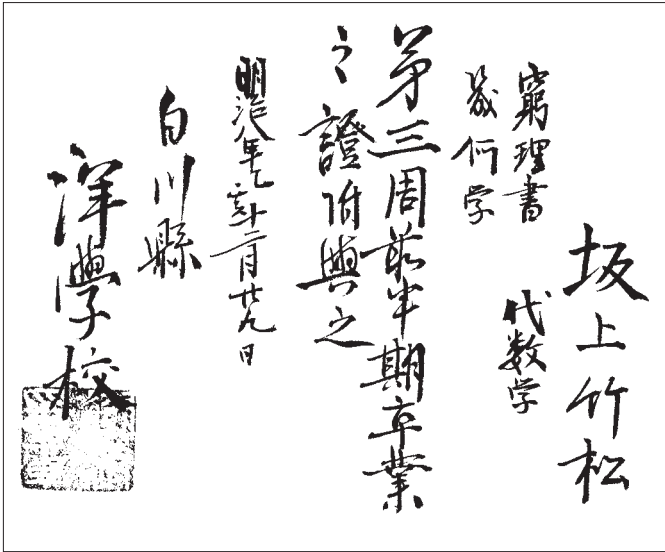 坂上竹松
窮理書　代数学
幾何学
第三周前半期卒業
之證附與之
明治八年乙亥十二月廿九日
白川縣
洋學校